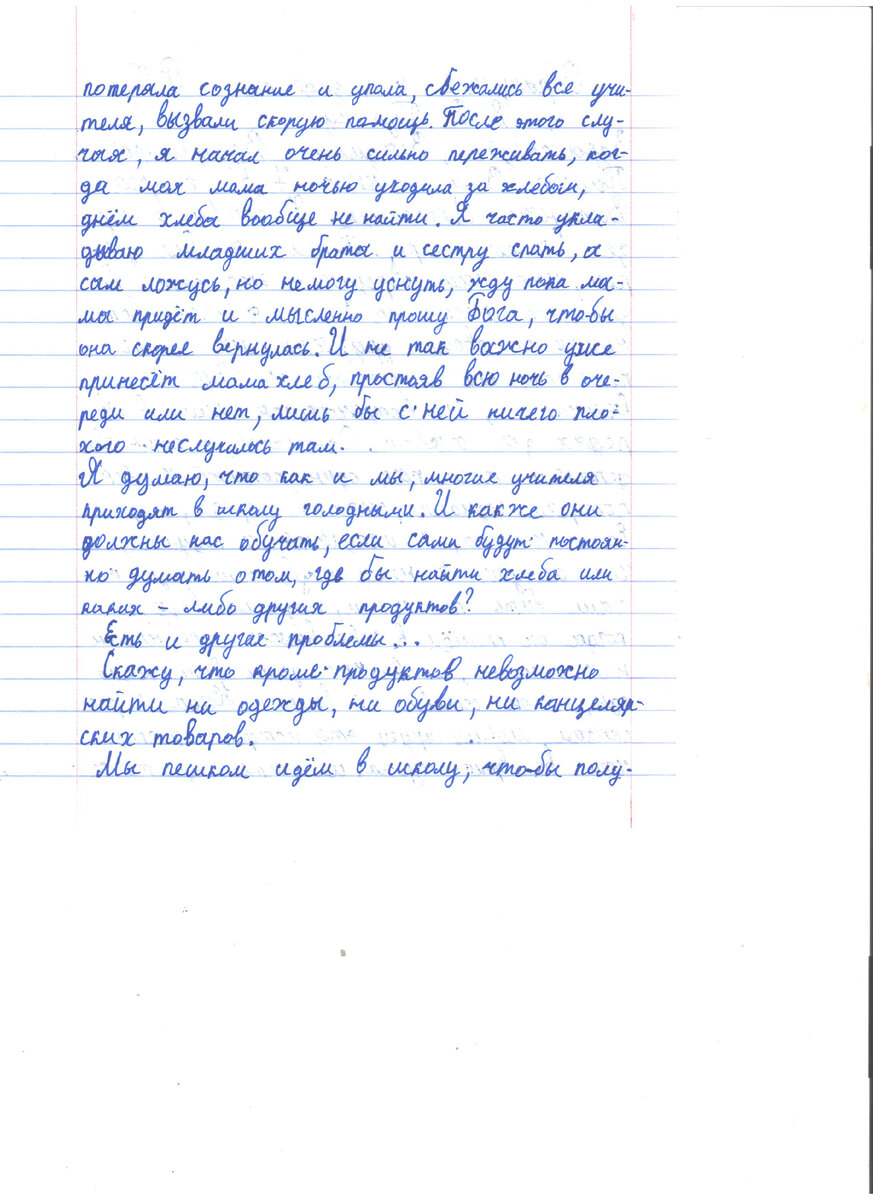 потеряла сознание и упала, сбежались все учи-
теля, вызвали скорую помощь. После этого слу-
чая, я начал очень сильно переживать, ког-
да моя мама ночью уходила за хлебом,
днём хлеба вообще не найти. Я часто укла-
дываю младших брата и сестру спать, а
сам ложусь, но немогу уснуть, жду пока ма-
ма придёт и мысленно прошу Бога, что-бы
она скорее вернулась. И не так важно уже
принесёт мама хлеб, простояв всю ночь в оче-
реди или нет, лишь бы с ней ничего пло-
хого неслучилось там.
Я думаю, что как и мы, многие учителя
приходят в школу голодными. И как же они
должны нас обучать, если сами будут постоян-
но думать о том, где бы найти хлеба или
каких - либо других продуктов?
Есть и другие проблемы...
Скажу, что кроме продуктов невозможно
найти ни одежды, ни обуви, ни канцеляр-
ских товаров.
Мы пешком идём в школу, что-бы полу-